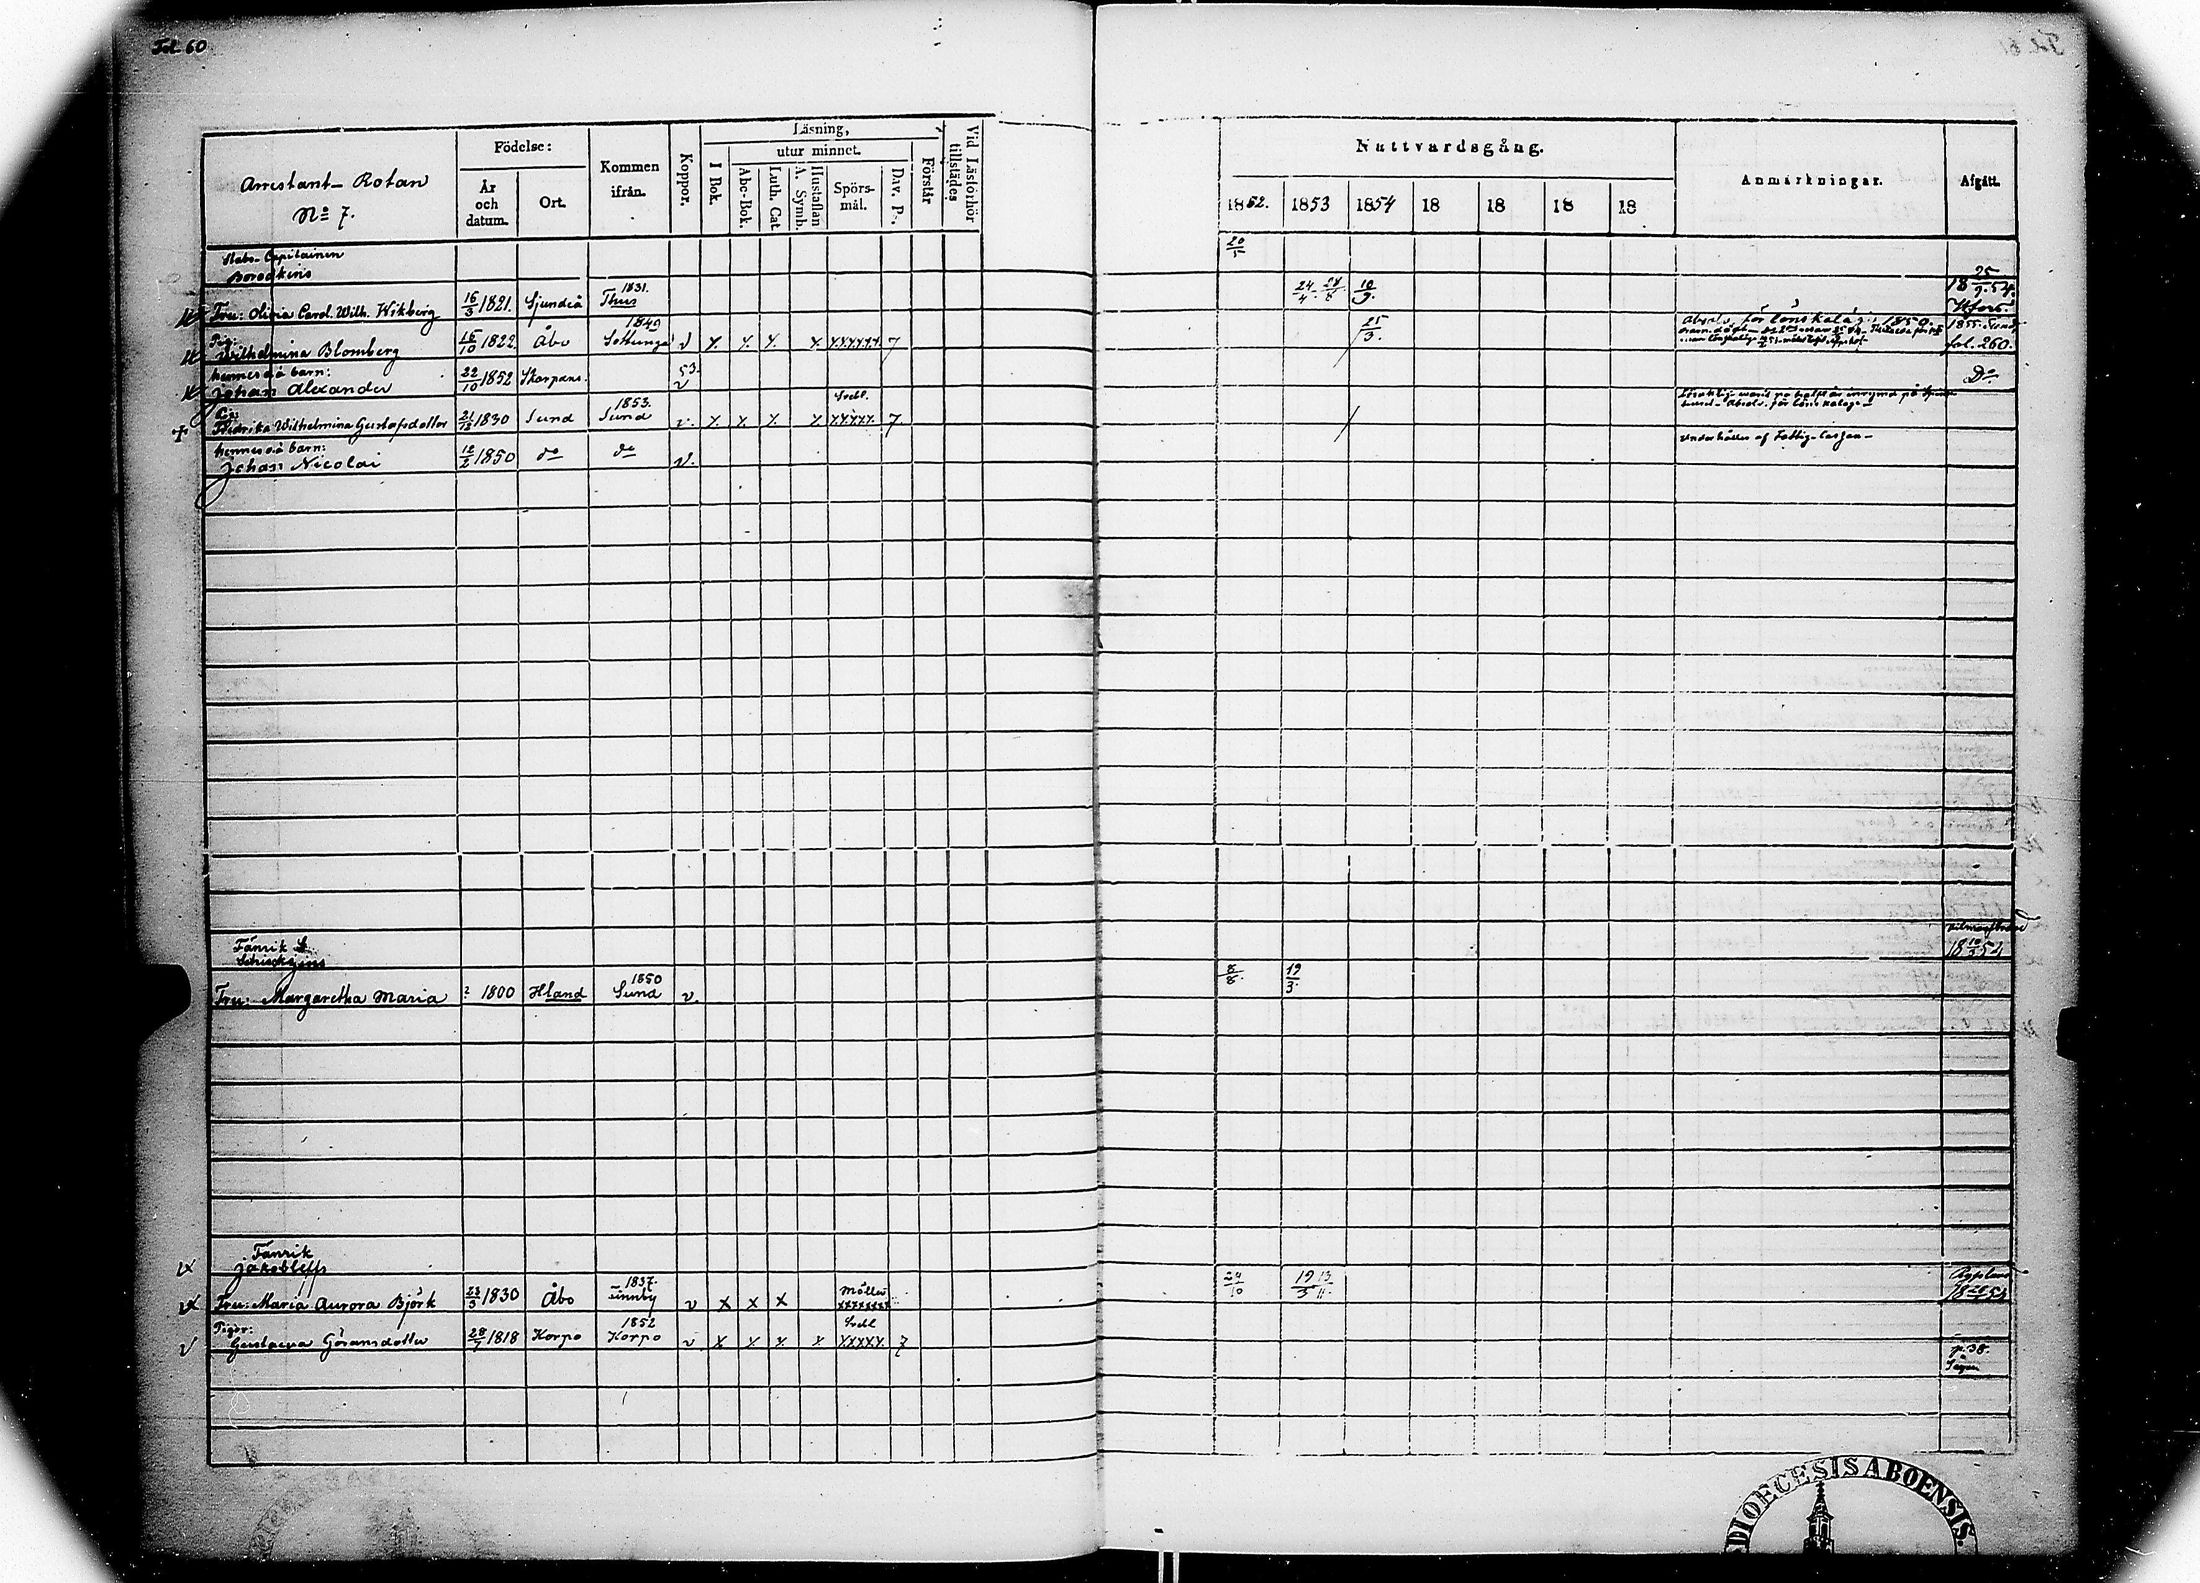 Fol. 60
Arrestant-Rotan
No 7.
Födelse:
År och datum.
Ort.
Kommen ifrån.
Koppor.
Läsning,
I Bok.
utur minnet.
Abc-Bok.
Luth. Cat.
Hustaflan A. Symb.
Spörsmål.
Dav. Ps.
Förstår
Vid Läsförhör tillstädes
Nattvardsgång.
1852. 1853 1854 18 18 18 18
Anmärkningar.
Afgått.
Stabs-Capitainen
Borodkins
20/5
Fru: Olivia Carol. Wilh. Wikberg 16/3 1821. Sjundeå 1831. 24/4 10/9. 18 25/9 54. Hfors.
Pig: Wilhelmina Blomberg 16/10 1822 Åbo 1849 v 7 25/3. Absolv. för lönskaläge 1850. 1855 fol. 260.
hennes oä barn:
Johan Alexander 22/10 1852 Skarpans. 53. v Do
Pig:
Fredrika Wilhelmina Gustafsdotter 21/12 1830 Sund 1853. Sund v. Svebl. 7.
hennes oä barn:
Johan Nicolai 12/2 1850 do do v. Underhålles af Fattig-Cassan
Fänrik
18 10/5 54
Fru: Margaretha Maria ? 1800 Hland 1850 Sund v. 8/8. 19/3.
Fänrik
Jakobleffs
Fru: Maria Aurora Björk 23/3 1830 Åbo 1837. Finnby v x x x Möller xxxxxxx 24/10 19/3 13/11.
Pigor:
Gustava Göransdotter 28/7 1818 Korpo 1852 Korpo v x x x x Svebl xxxxx. 7 p. 38.
DIOECESIS ABOENSIS.